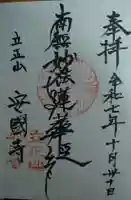 奉拝
令和七年十月二十日
南無妙法蓮華経
立正山
安國寺